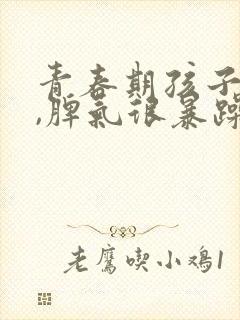 青春期孩子
,脾气很暴躁
老鹰喫小鸡1